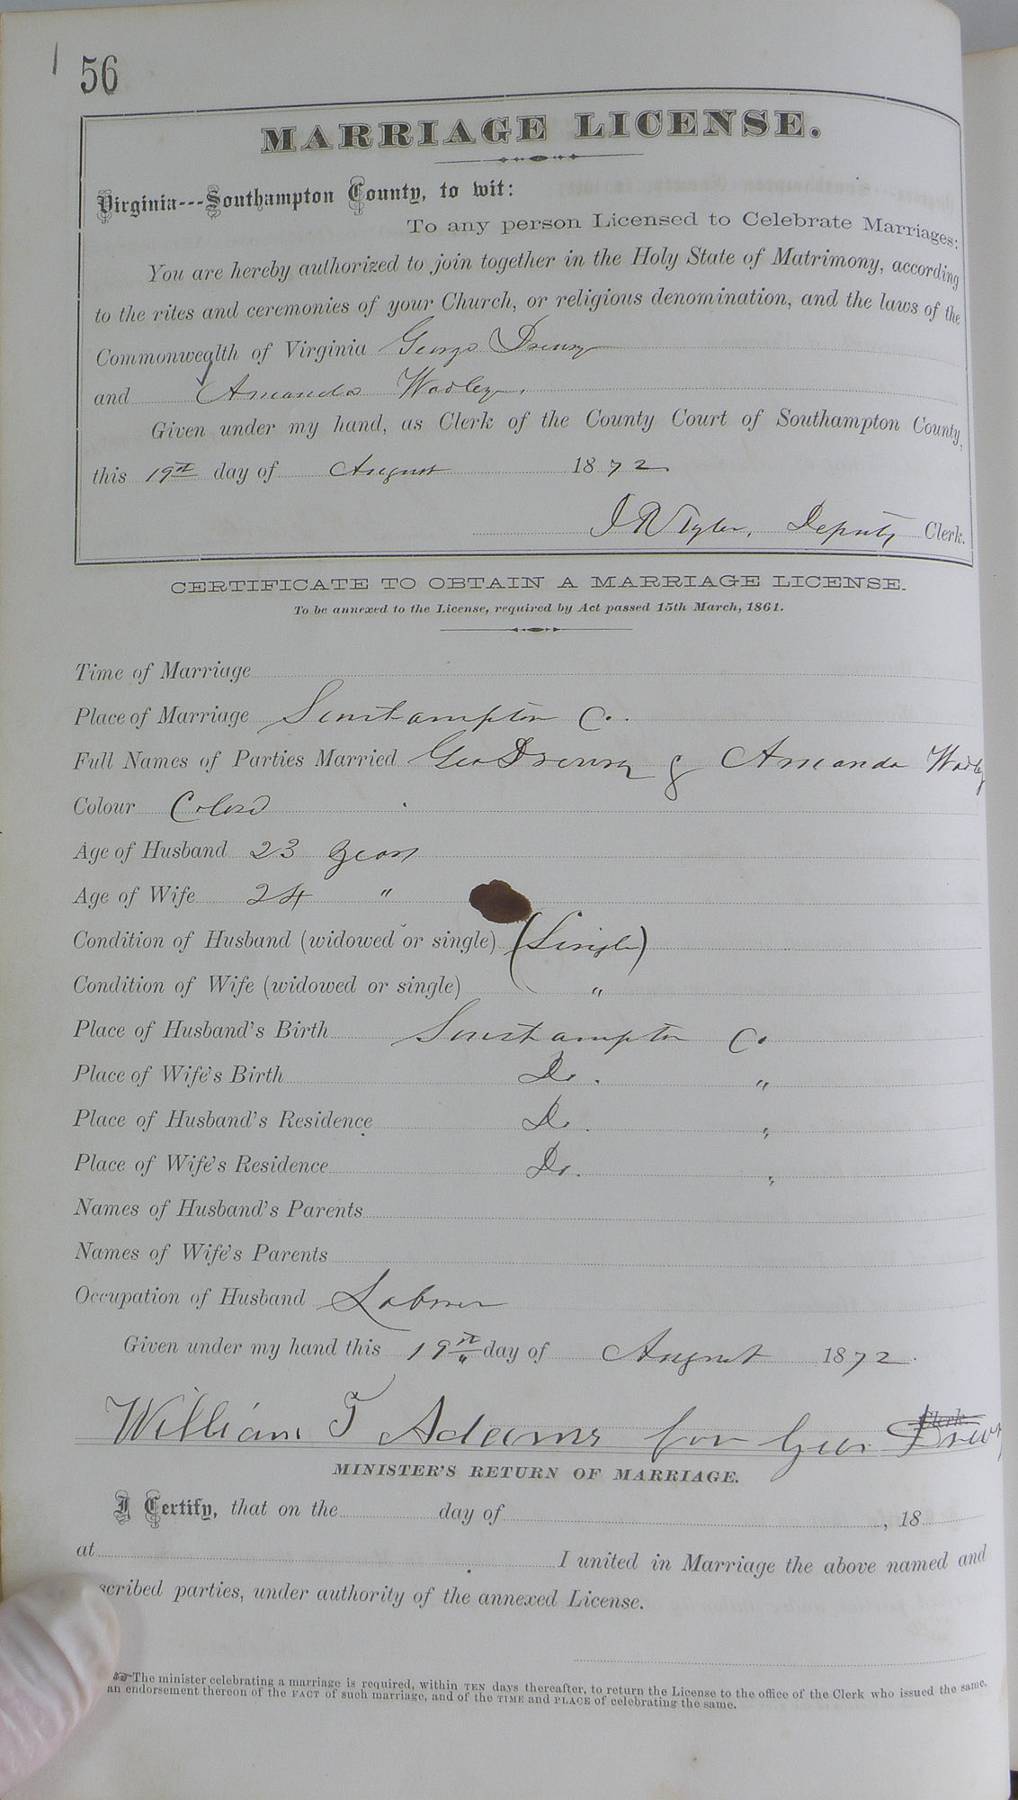 56
MARRIAGE LICENSE.
Virginia---Southampton County, to wit:
To any person Licensed to Celebrate Marriages:
You are hereby authorized to join together in the Holy State of Matrimony, according
to the rites and ceremonies of your Church, or religious denomination, and the laws of the
Commonwealth of Virginia George Drewry
and Amanda Wadley.
Given under my hand, as Clerk of the County Court of Southampton County,
this 19th day of August 1872
Tyler, Deputy Clerk.
CERTIFICATE TO OBTAIN A MARRIAGE LICENSE.
To be annexed to the License, required by Act passed 15th March, 1861.
Time of Marriage
Place of Marriage Southampton Co.
Full Names of Parties Married Geo Drewry & Amanda Wadley
Colour Colord
Age of Husband 23 years
Age of Wife 24 "
Condition of Husband (widowed or single) (Single)
Condition of Wife (widowed or single) "
Place of Husband's Birth Southampton Co
Place of Wife's Birth Do. "
Place of Husband's Residence Do. "
Place of Wife's Residence Do. "
Names of Husband's Parents
Names of Wife's Parents
Occupation of Husband Laborer
Given under my hand this 19th day of August 1872.
William T Adams for Geo Drewry Clerk.
MINISTER'S RETURN OF MARRIAGE.
I Certify, that on the day of , 18
at I united in Marriage the above named and
scribed parties, under authority of the annexed License.
The minister celebrating a marriage is required, within TEN days thereafter, to return the License to the office of the Clerk who issued the same,
an endorsement thereon of the FACT of such marriage, and of the TIME and PLACE of celebrating the same.